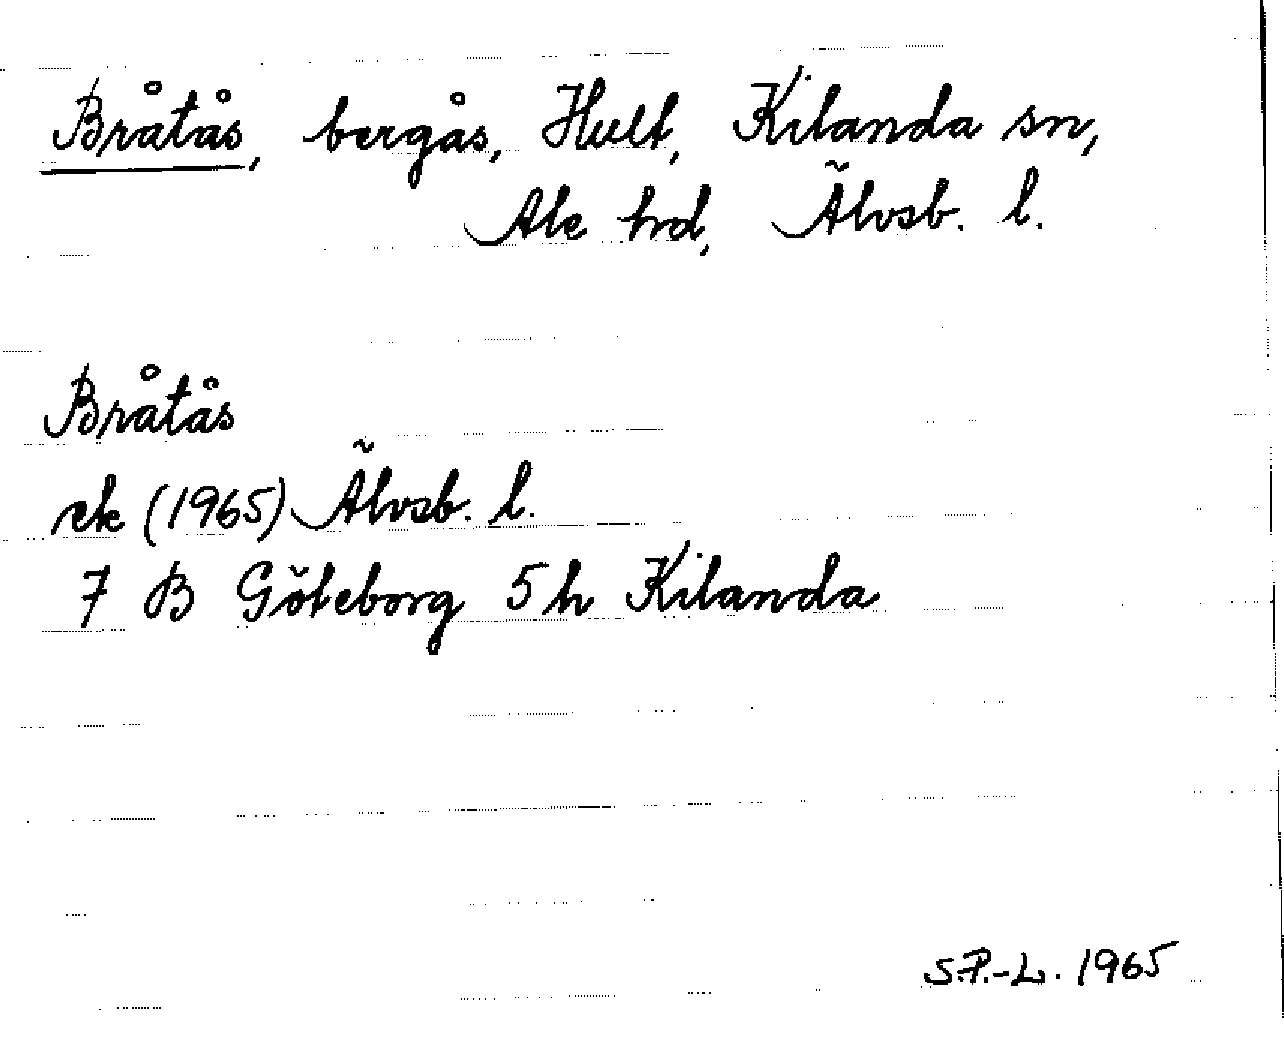 Bråtås, bergås, Hult, Kilanda sn,
Ale hrd, Älvsb. l.
Bråtås
ek (1965) Älvsb. l.
7 B Göteborg 5 h Kilanda
S.P.-L. 1965